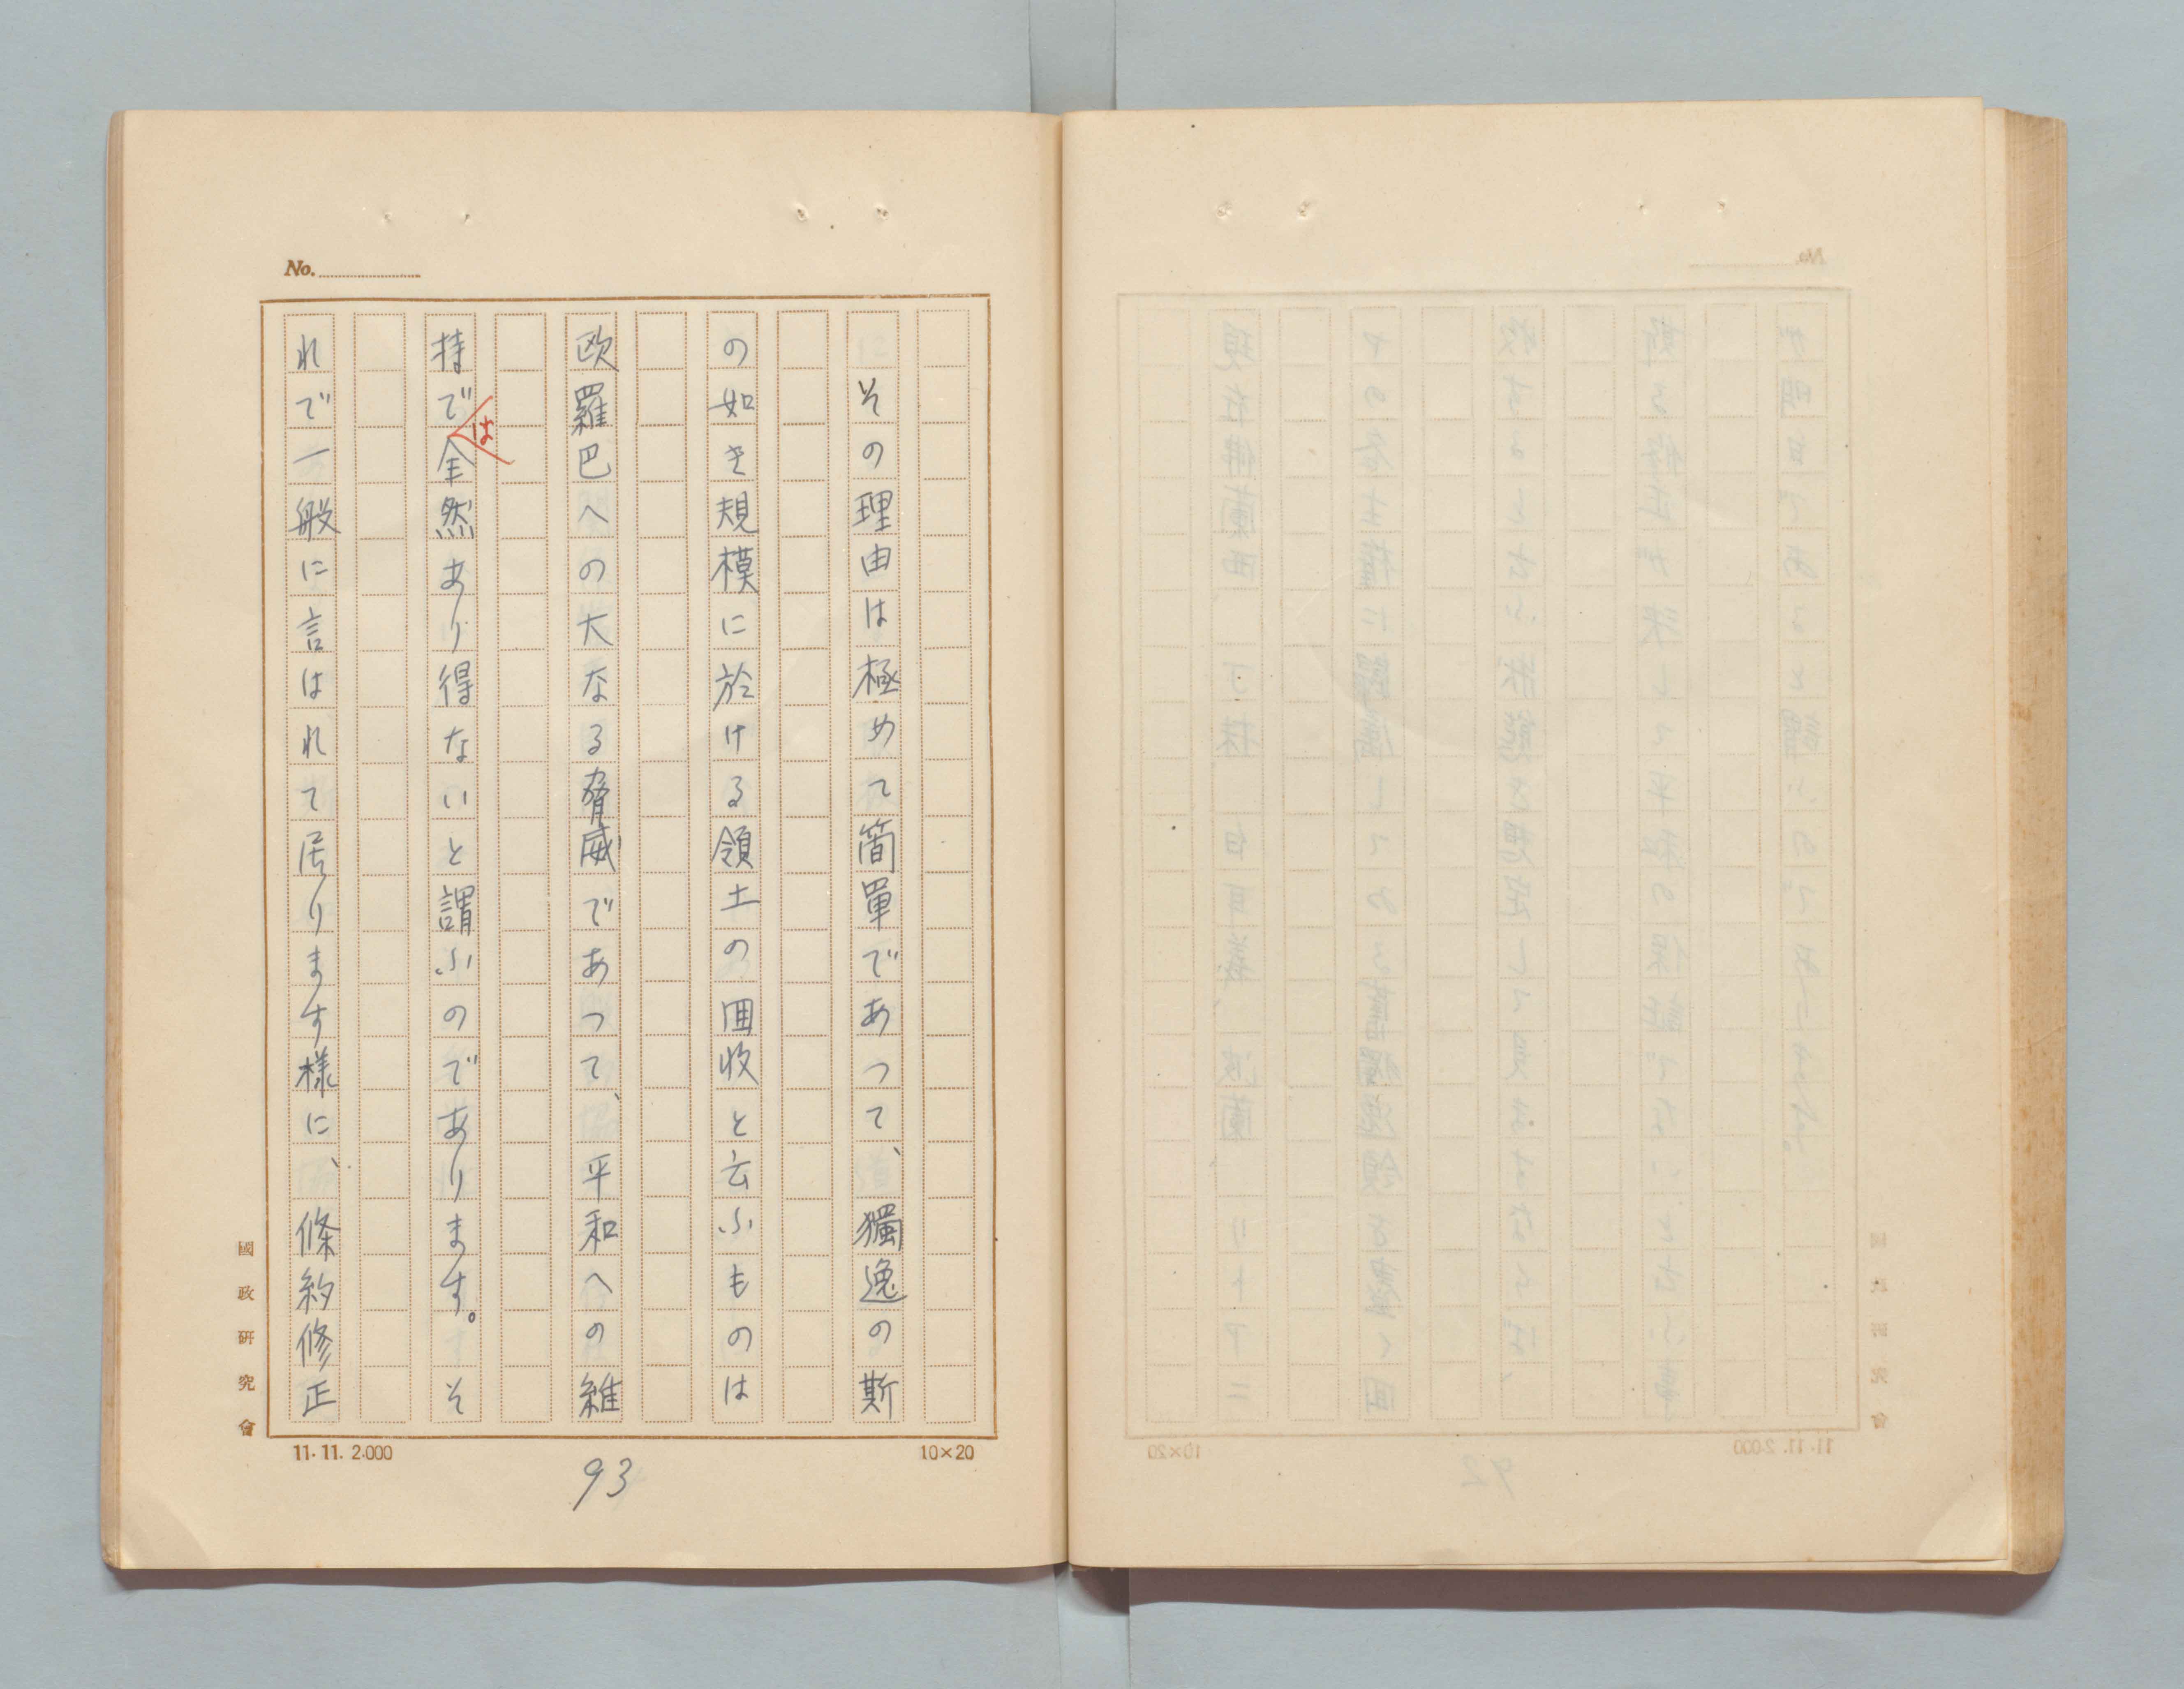 No.
その理由は極めて簡單であつて、獨逸の斯
の如き規模に於ける領土の囬收と云ふものは
欧羅巴への大なる脅威であつて、平和への維
持では全然あり得ないと謂ふのであります。そ
れで一般に言はれて居ります様に、條約修正
國政研究會
11.11.2.000
10×20
93